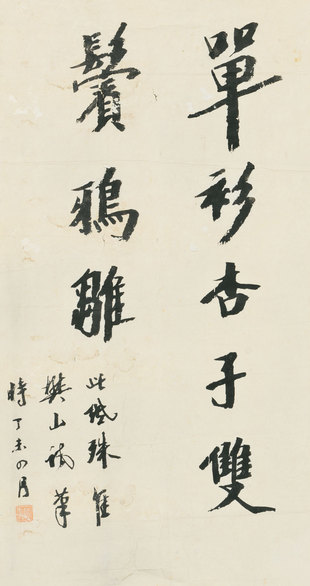 單衫杏子雙
鬢鴉雛
此紙殊佳
樊山試筆
時丁未四月